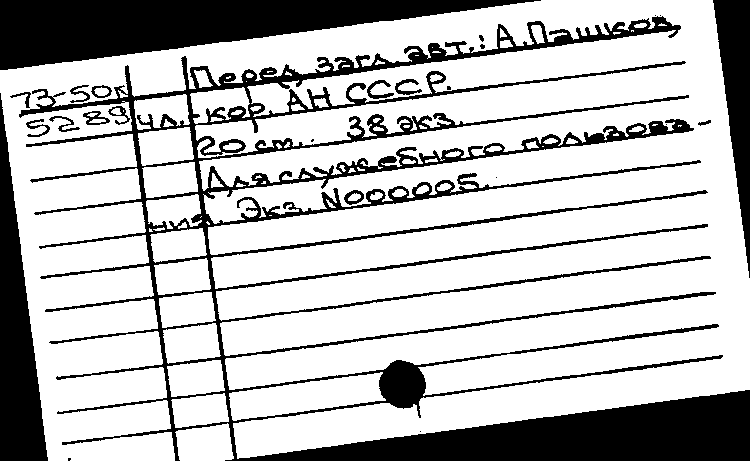 73-50к Перед загл. авт.: А.Пашков,
5289 чл.-кор. АН СССР.
20 ст. 38 экз.
Для служебного пользова-
ния. Экз. N000005.